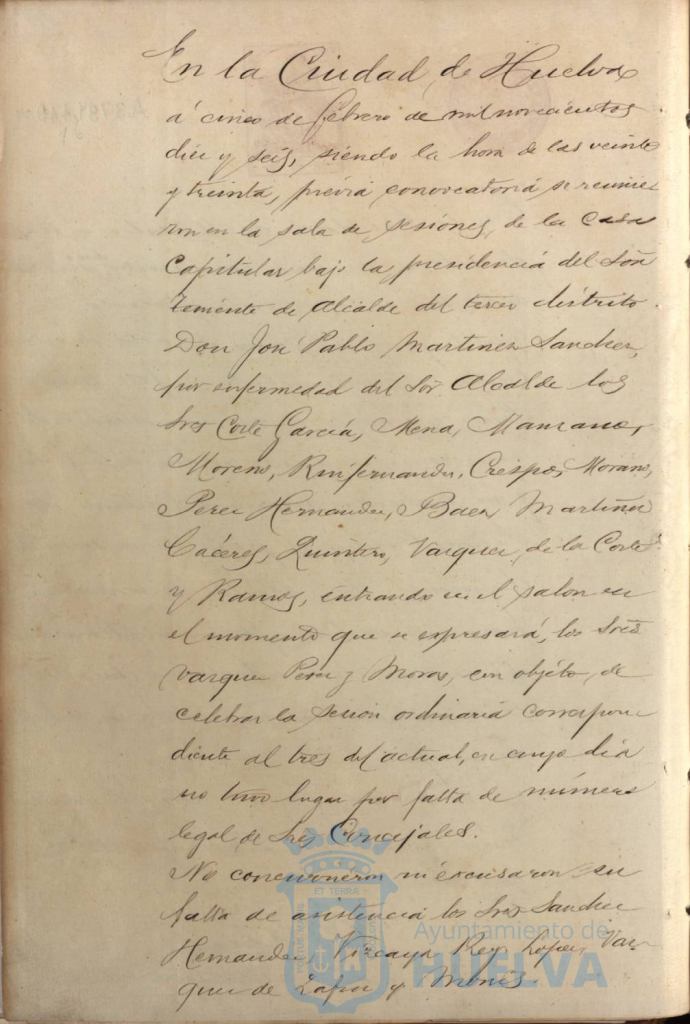 En la Ciudad de Huelva
á cinco de febrero de mil novecientos
diez y seis, siendo la hora de las veinte
y treinta, previa convocatoria se reunie
ron en la sala de sesiones de la Casa
Capitular bajo la presidencia del Sor
Teniente de Alcalde del tercer distrito
Don José Pablo Martinez Sanchez,
por enfermedad del Sor Alcalde los
Sres Corte García, Mena, Manzano,
Moreno, Ruifernandez, Crespo, Morano,
Perez Hernandez, Baez Martinez
Cáceres, Quintero, Vazquez de la Corte
y Ramos, entrando en el salon en
el momento que se expresará, los Sores
Vazquez Perez y Moros, con objeto de
celebrar la sesion ordinaria correspon
diente al tres del actual, en cuyo dia
no tuvo lugar por falta de número
legal de Sres Concejales.
No concurrieron ni excusaron su
falta de asistencia los Sres Sanchez
Hernandez, Vizcaya Rey, Lopez, Vaz
quez de Zafra y Moniz.
ET TERRÆ
Ayuntamiento de
HUELVA